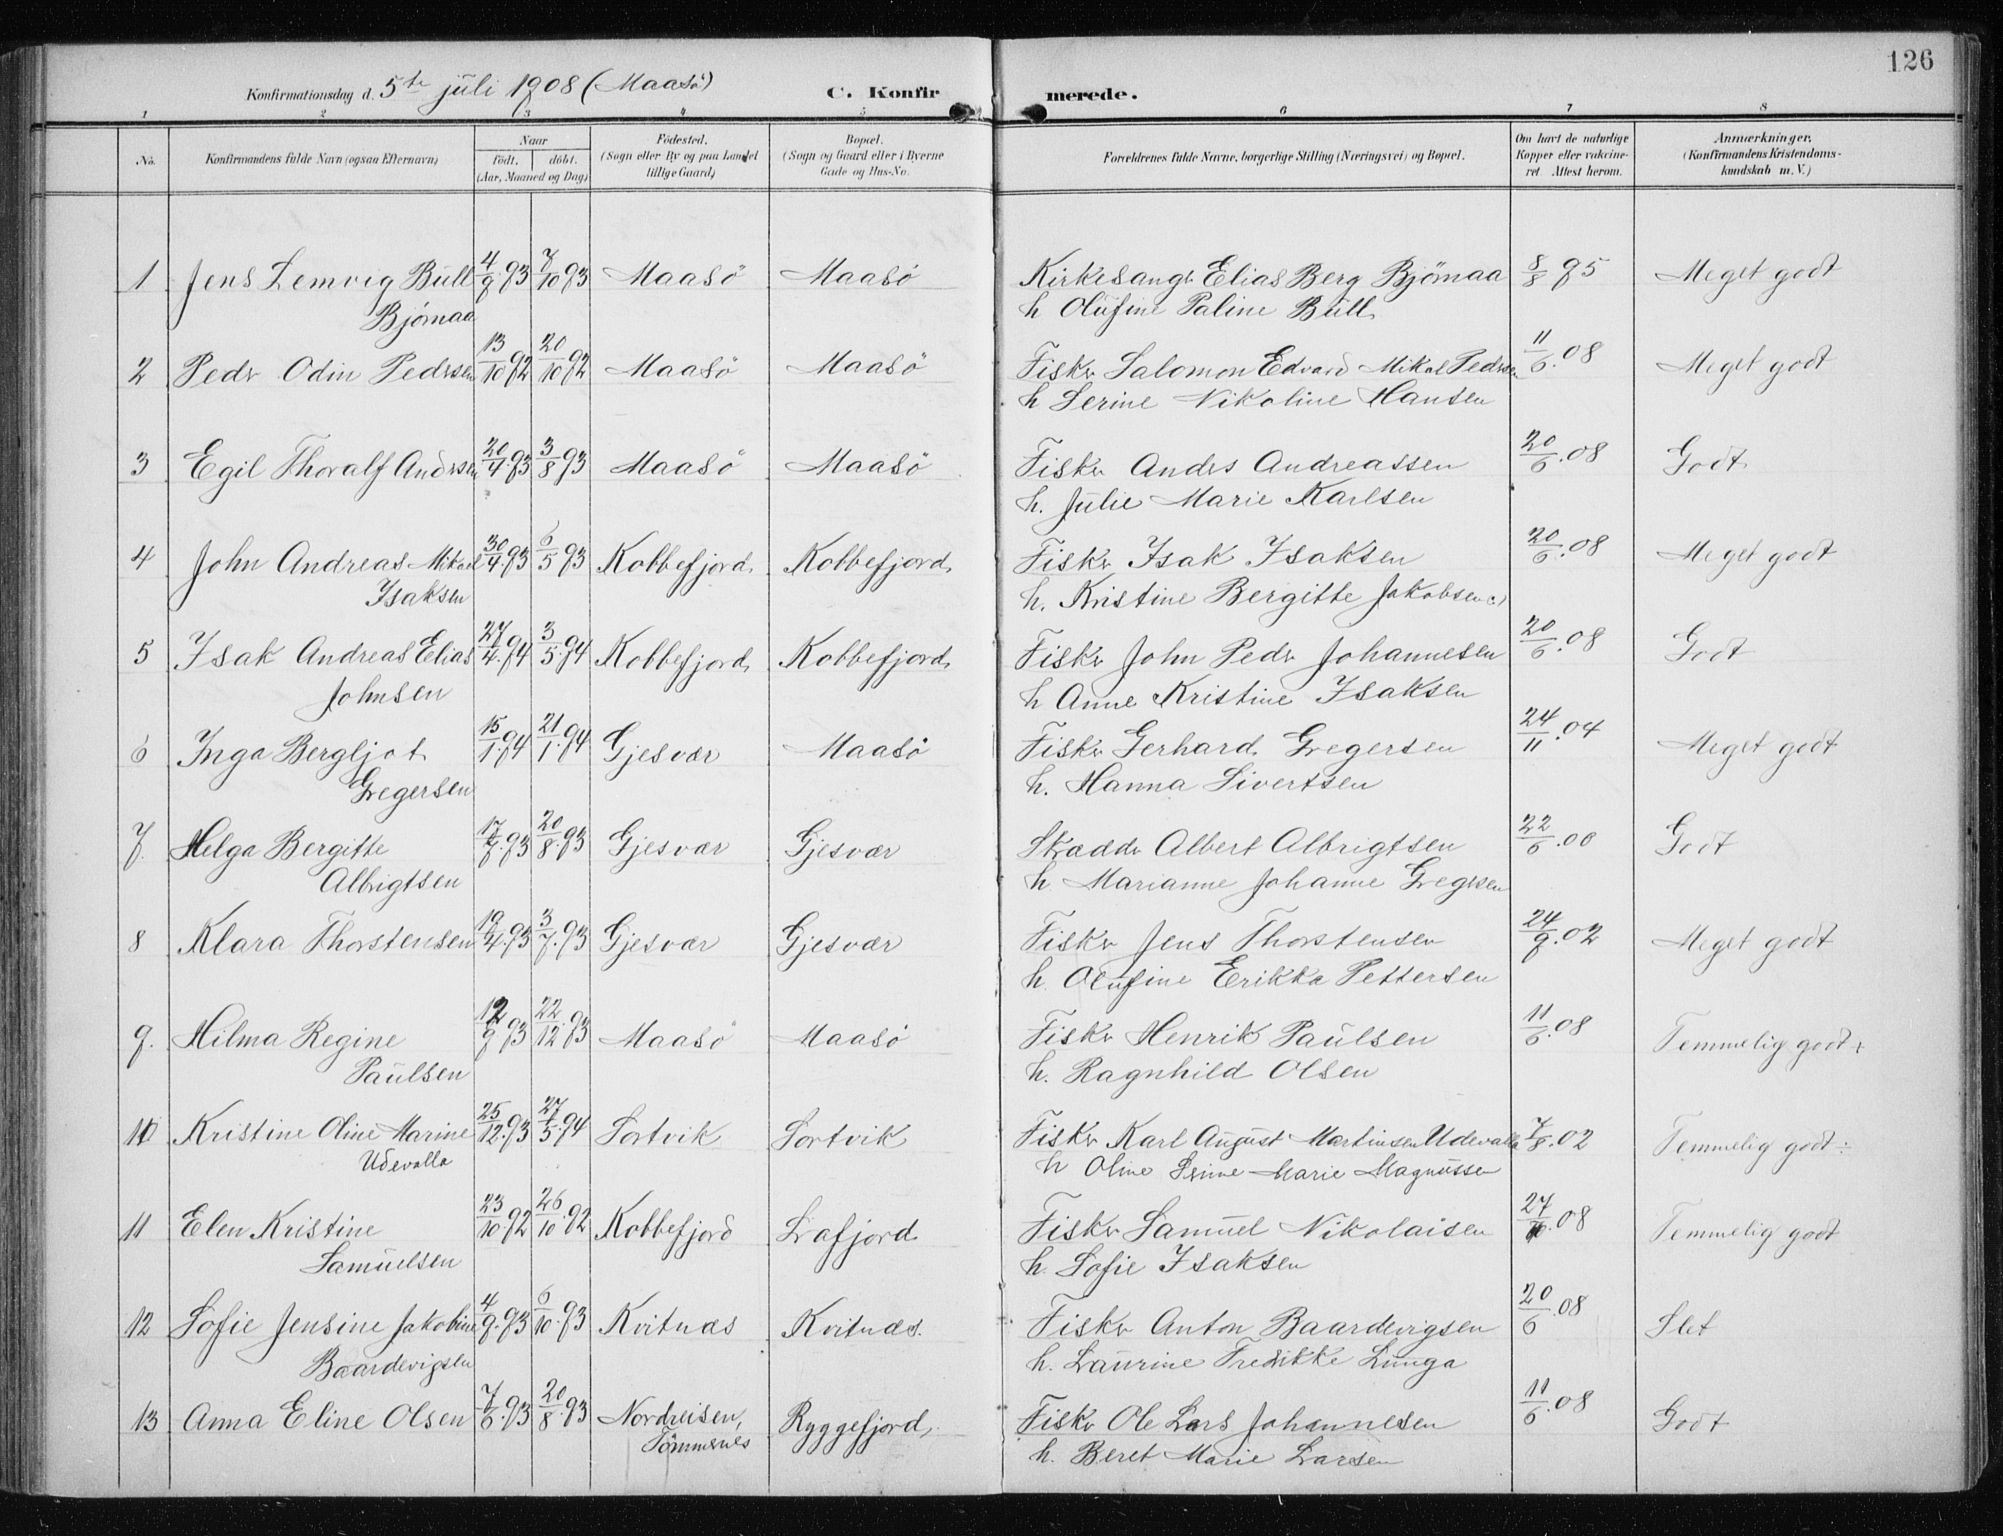 126
Konfirmationsdag d. 5te juli 1908 (Maasö) C. Konfirmerede.
1 2 3 4 5 6 7 8
No. Konfirmandens fulde Navn (ogsaa Efternavn) Naar födt. döbt. (Aar, Maaned og Dag) Födested. (Sogn eller By og paa Landet tillige Gaard) Bopæl. (Sogn og Gaard eller i Byerne Gade og Hus-No. Forældrenes fulde Navne, borgerlige Stilling (Næringsvei) og Bopæl. Om havt de naturlige Kopper eller vakcineret. Attest herom. Anmærkninger. (Konfirmandens Kristendomskundskab m. V.)
1 Jens Lemvig Bull 4/9 93 7/10 93 Maasö Maasö Kirkesangr Elias Berg Bjömaa 8/8 95 Meget godt
Bjömaa h Olufine Paline Bull
2 Pedr Odin Pedrsen 13/10 92 20/10 92 Maasö Maasö Fiskr Salomon Edvard Mikal Pedrsen 11/6.08 Meget godt
h Serine Nikoline Hansen
3 Egil Thoralf Andrsen 20/4.93 3/8 93 Maasö Maasö Fiskr Andrs Andreassen 20/6.08 Godt
h. Julie Marie Karlsen
4 John Andreas Mikael 30/4.93 6/5 93 Kobbefjord Kobbefjord Fiskr Isak Isaksen 20/6.08 Meget godt
Isaksen h. Kristine Bergitte Jakobsen
5 Isak Andreas Elias 27/4.94 3/5.94 Kobbefjord Kobbefjord Fiskr John Pedr Johannesen 20/6.08 Godt
Johnsen h Anne Kristine Isaksen
6 Inga Bergljot 15/1.94 21/1.94 Gjesvær Maasö Fiskr Gerhard Gregersen 24/11.04 Meget godt
Gregersen h. Hanna Sivertsen
7. Helga Bergitte 17/7.93 20/8.93 Gjesvær Gjesvær Skrædder Albert Albrigtsen 22/6.00 Godt
Albrigtsen h. Marianne Johanne Gregrsen
8 Klara Thorstensen 19/4.93 3/7.93 Gjesvær Gjesvær Fiskr Jens Thorstensen 24/9.02 Meget godt
h. Olufine Erikka Pettersen
9. Hilma Regine 12/9 93 22/12.93 Maasö Maasö Fiskr Henrik Paulsen 11/6.08 Temmelig godt+
Paulsen h. Ragnhild Olsen
10 Kristine Oline Marine 25/12.93 27/5.94 Sortvik Sortvik Fiskr Karl August Martinsen Udevalla 7/8.02 Temmelig godt÷
Udevalla h Oline Serine Marie Magnussen
11 Elen Kristine 23/10.92 26/10.92 Kobbefjord Lafjord Fiskr Samuel Nikolaisen 27/6.08 Temmelig godt
Samuelsen h. Sofie Isaksen
12 Sofie Jensine Jakobine 4/9.93 6/10.93 Kvitnæs Kvitnæs. Fiskr Anton Baardevigsen 20/6 08 Slet
Baardevigsen h. Laurine Fredrikke Lunga
13 Anna Eline Olsen 7/6.93 20/8.93 Nordreisen, Ryggefjord, Fiskr Ole Lars Johannesen 11/6.08 Godt
h. Beret Marie Larsen